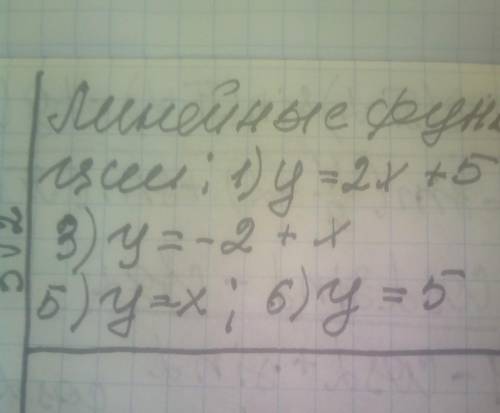 Линейные функ
ции; 1) y = 2x + 5
3) y = -2 + x
5) y = x; 6) y = 5